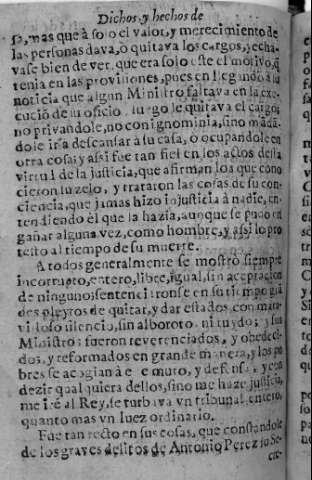 Dichos, y hechos de
so, mas que à solo el valor, y merecimiento de
las personas dava, o quitava los cargos, y echa-
vase bien de ver, que era solo este el motivo, q̃
tenia en las provisiones, pues en llegando à su
noticia que algun Ministro faltava en la exe-
cució de su oficio, luego le quitava el cargo,
no privandole, no con ignominia, sino mãdã-
dole ir à descansar à su casa, o ocupandole en
otra cosa; y assi fue tan fiel en los actos desta
virtud de la justicia, que afirman los que cono
cieron su zelo, y trataron las cosas de su con-
ciencia, que jamas hizo injusticia à nadie, en-
tendiendo èl que la hazia, aunque se pudo en
gañar alguna vez, como hombre, y assi lo pro
testò al tiempo de su muerte.
A todos generalmente se mostrò siempre
incorrupto, entero, libre, igual, sin aceptacion
de ninguno; sentenciaronse en su tiempo grã
des pleytos de quitar, y dar estados, con mara-
villoso silencio, sin alboroto, ni ruydo; y sus
Ministros fueron reverenciados, y obedeci-
dos, y reformados en grande manera, y los po
bres se acogian à este muro, y defensa, y con
dezir qualquiera dellos, sino me haze justicia,
me irè al Rey, se turbava vn tribunal entero,
quanto mas vn Iuez ordinario.
Fue tan recto en sus cosas, que constandole
de los graves delitos de Antonio Perez su Se-
cre-